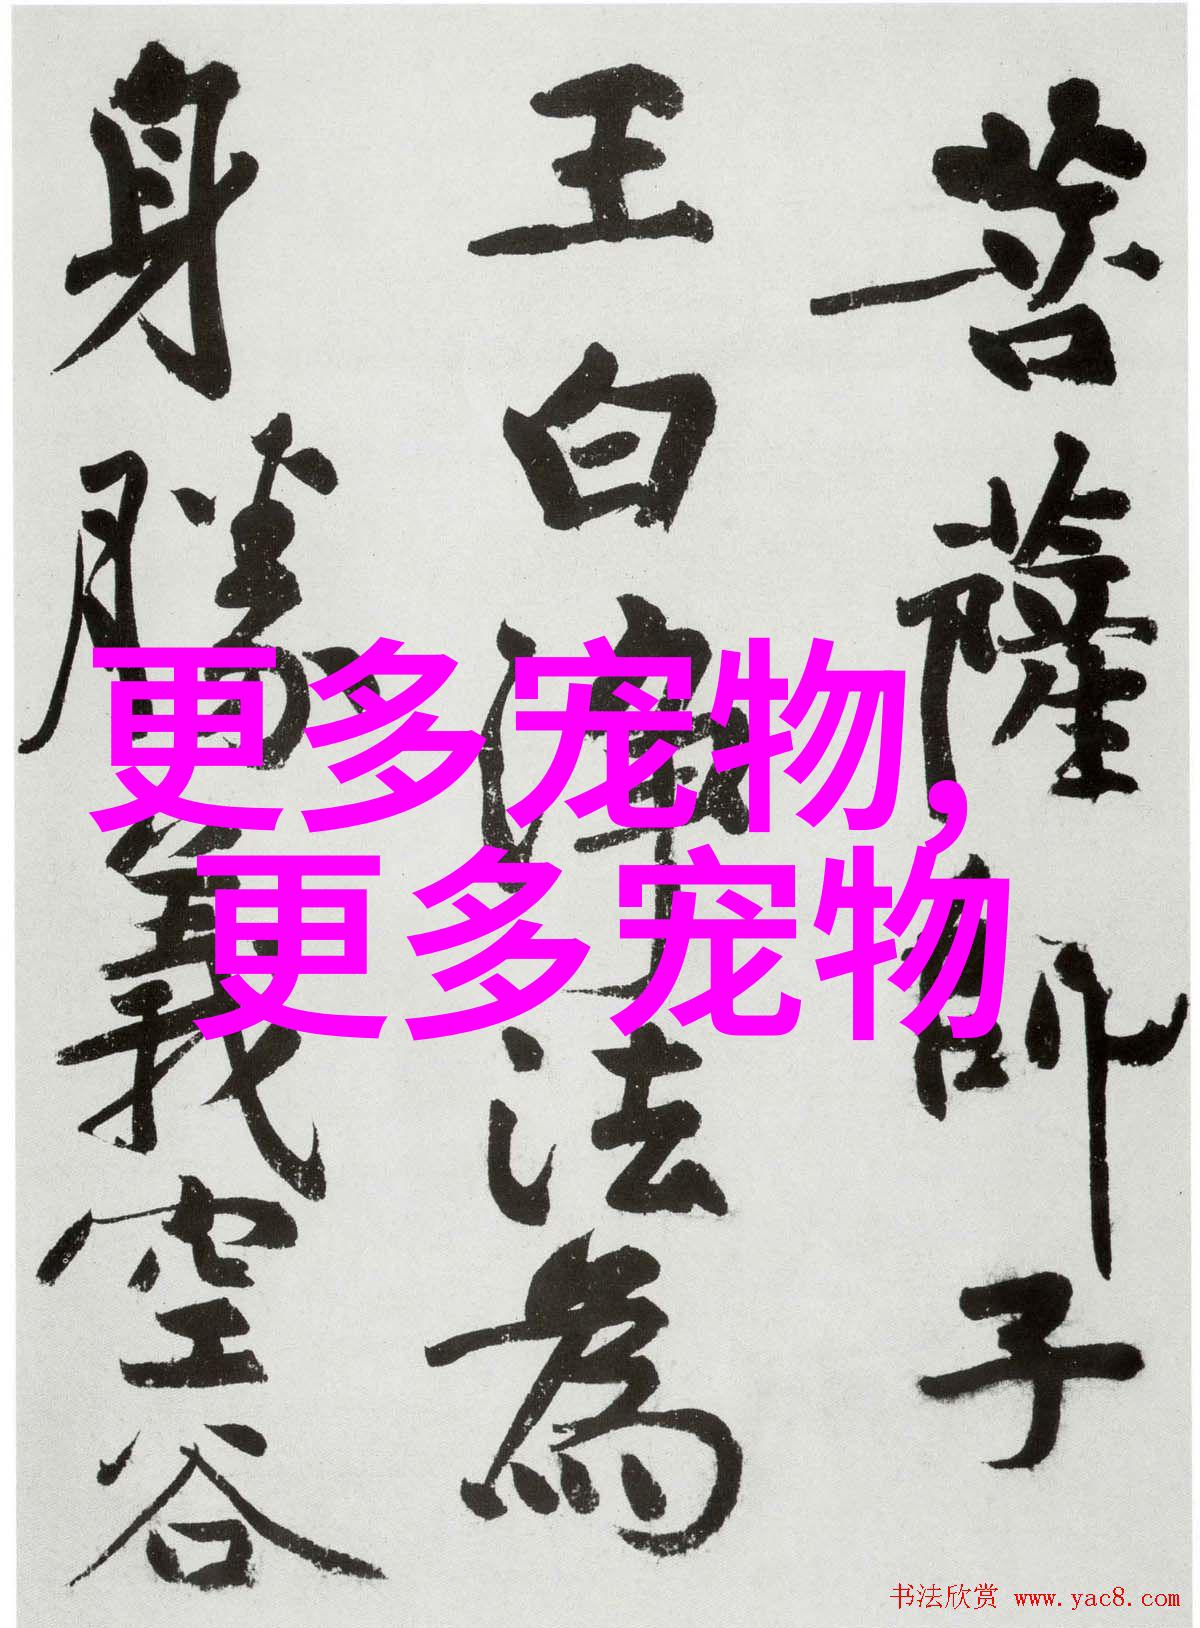 菩薩師子
王白淨法為
身勝義空谷
更多宠物,
更多宠物
书法欣赏 www.yac8.com